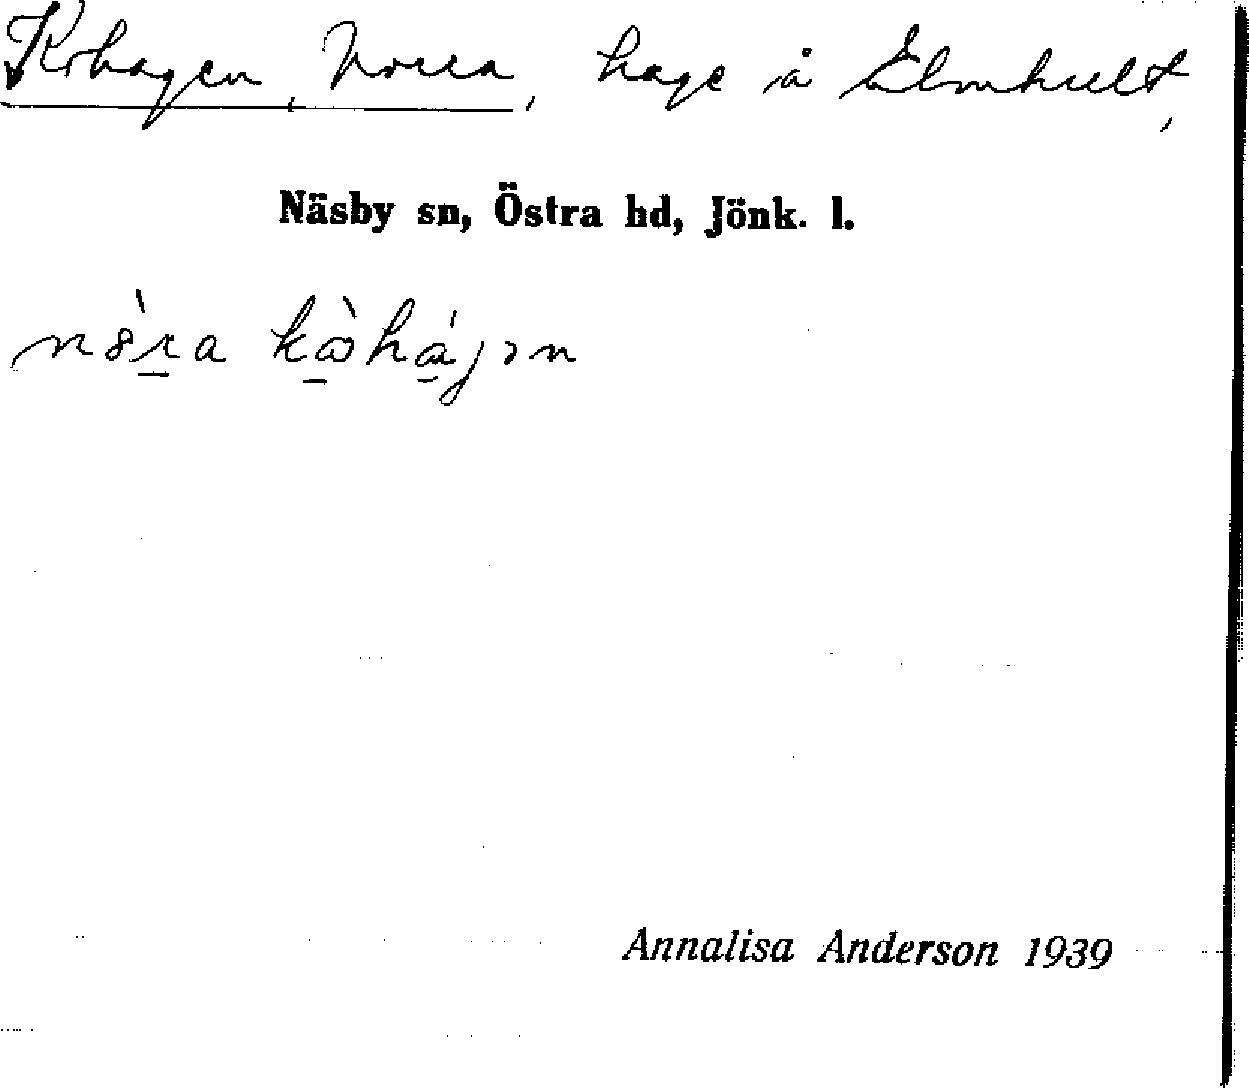 Kohagen, Norra, hage å Elmhult,
Näsby sn, Östra hd, Jönk. l.
Annalisa Anderson 1939